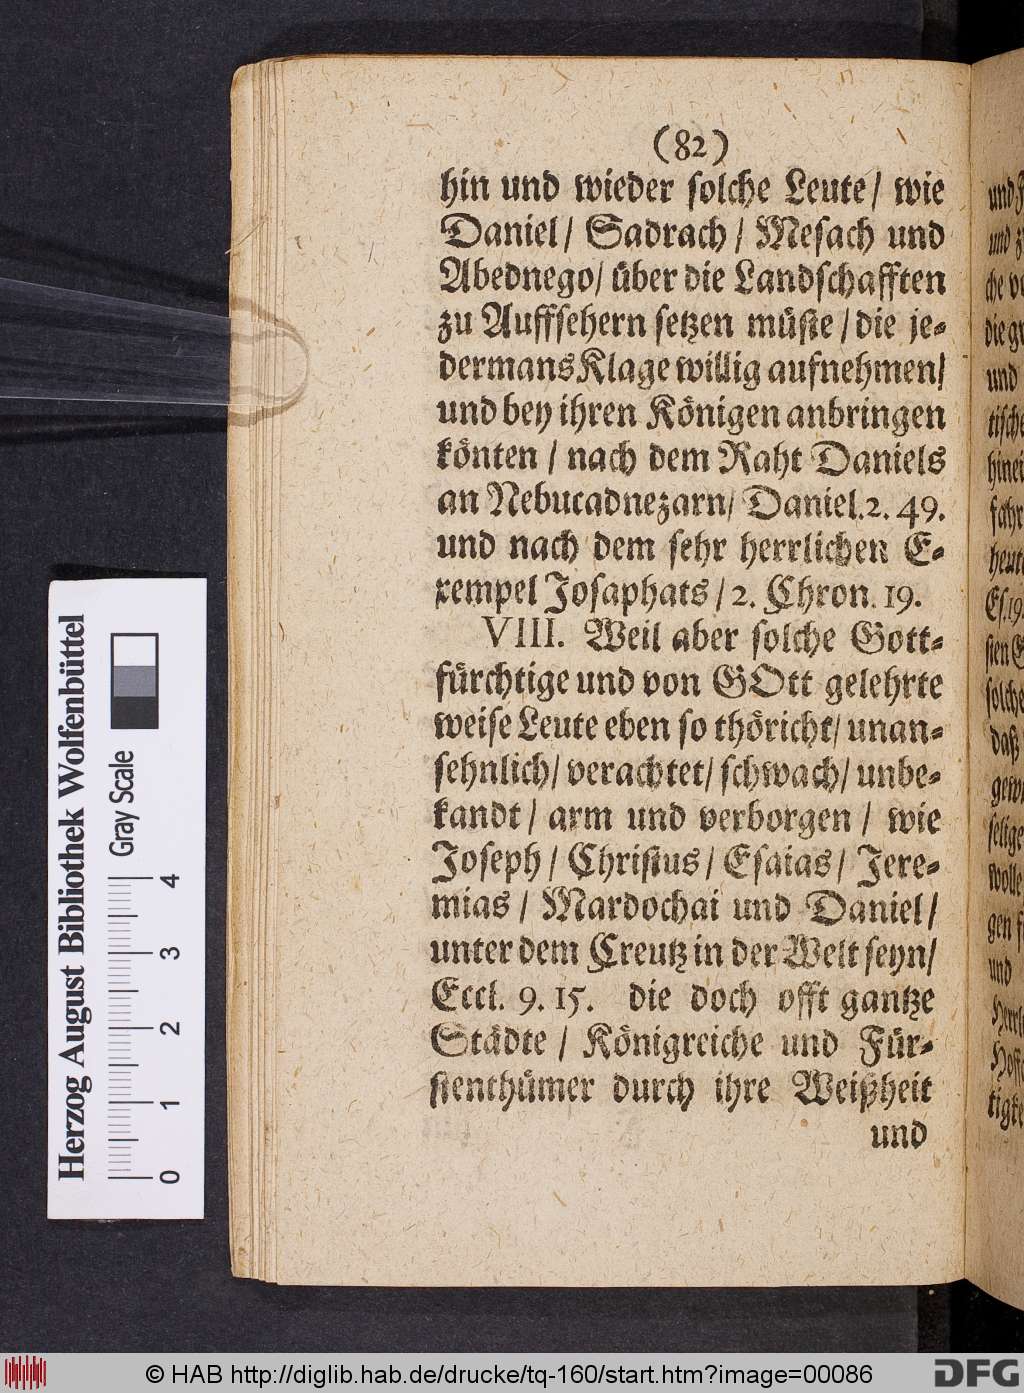 (82)
hin und wieder solche Leute/ wie
Daniel/ Sadrach/ Mesach und
Abednego/ über die Landschafften
zu Auffsehern setzen müste/ die je-
dermans Klage willig aufnehmen/
und bey ihren Königen anbringen
könten/ nach dem Raht Daniels
an Nebucadnezarn/ Daniel. 2. 49.
und nach dem sehr herrlichen E-
xempel Josaphats/ 2. Chron. 19.
VIII. Weil aber solche Gott-
fürchtige und von GOtt gelehrte
weise Leute eben so thöricht/ unan-
sehnlich/ verachtet/ schwach/ unbe-
kandt/ arm und verborgen/ wie
Joseph/ Christus/ Esaias/ Jere-
mias/ Mardochai und Daniel/
unter dem Creutz in der Welt seyn/
Eccl. 9. 15. die doch offt gantze
Städte/ Königreiche und Für-
stenthümer durch ihre Weißheit
und
Herzog August Bibliothek Wolfenbüttel
Gray Scale
0 1 2 3 4
© HAB http://diglib.hab.de/drucke/tq-160/start.htm?image=00086
DFG